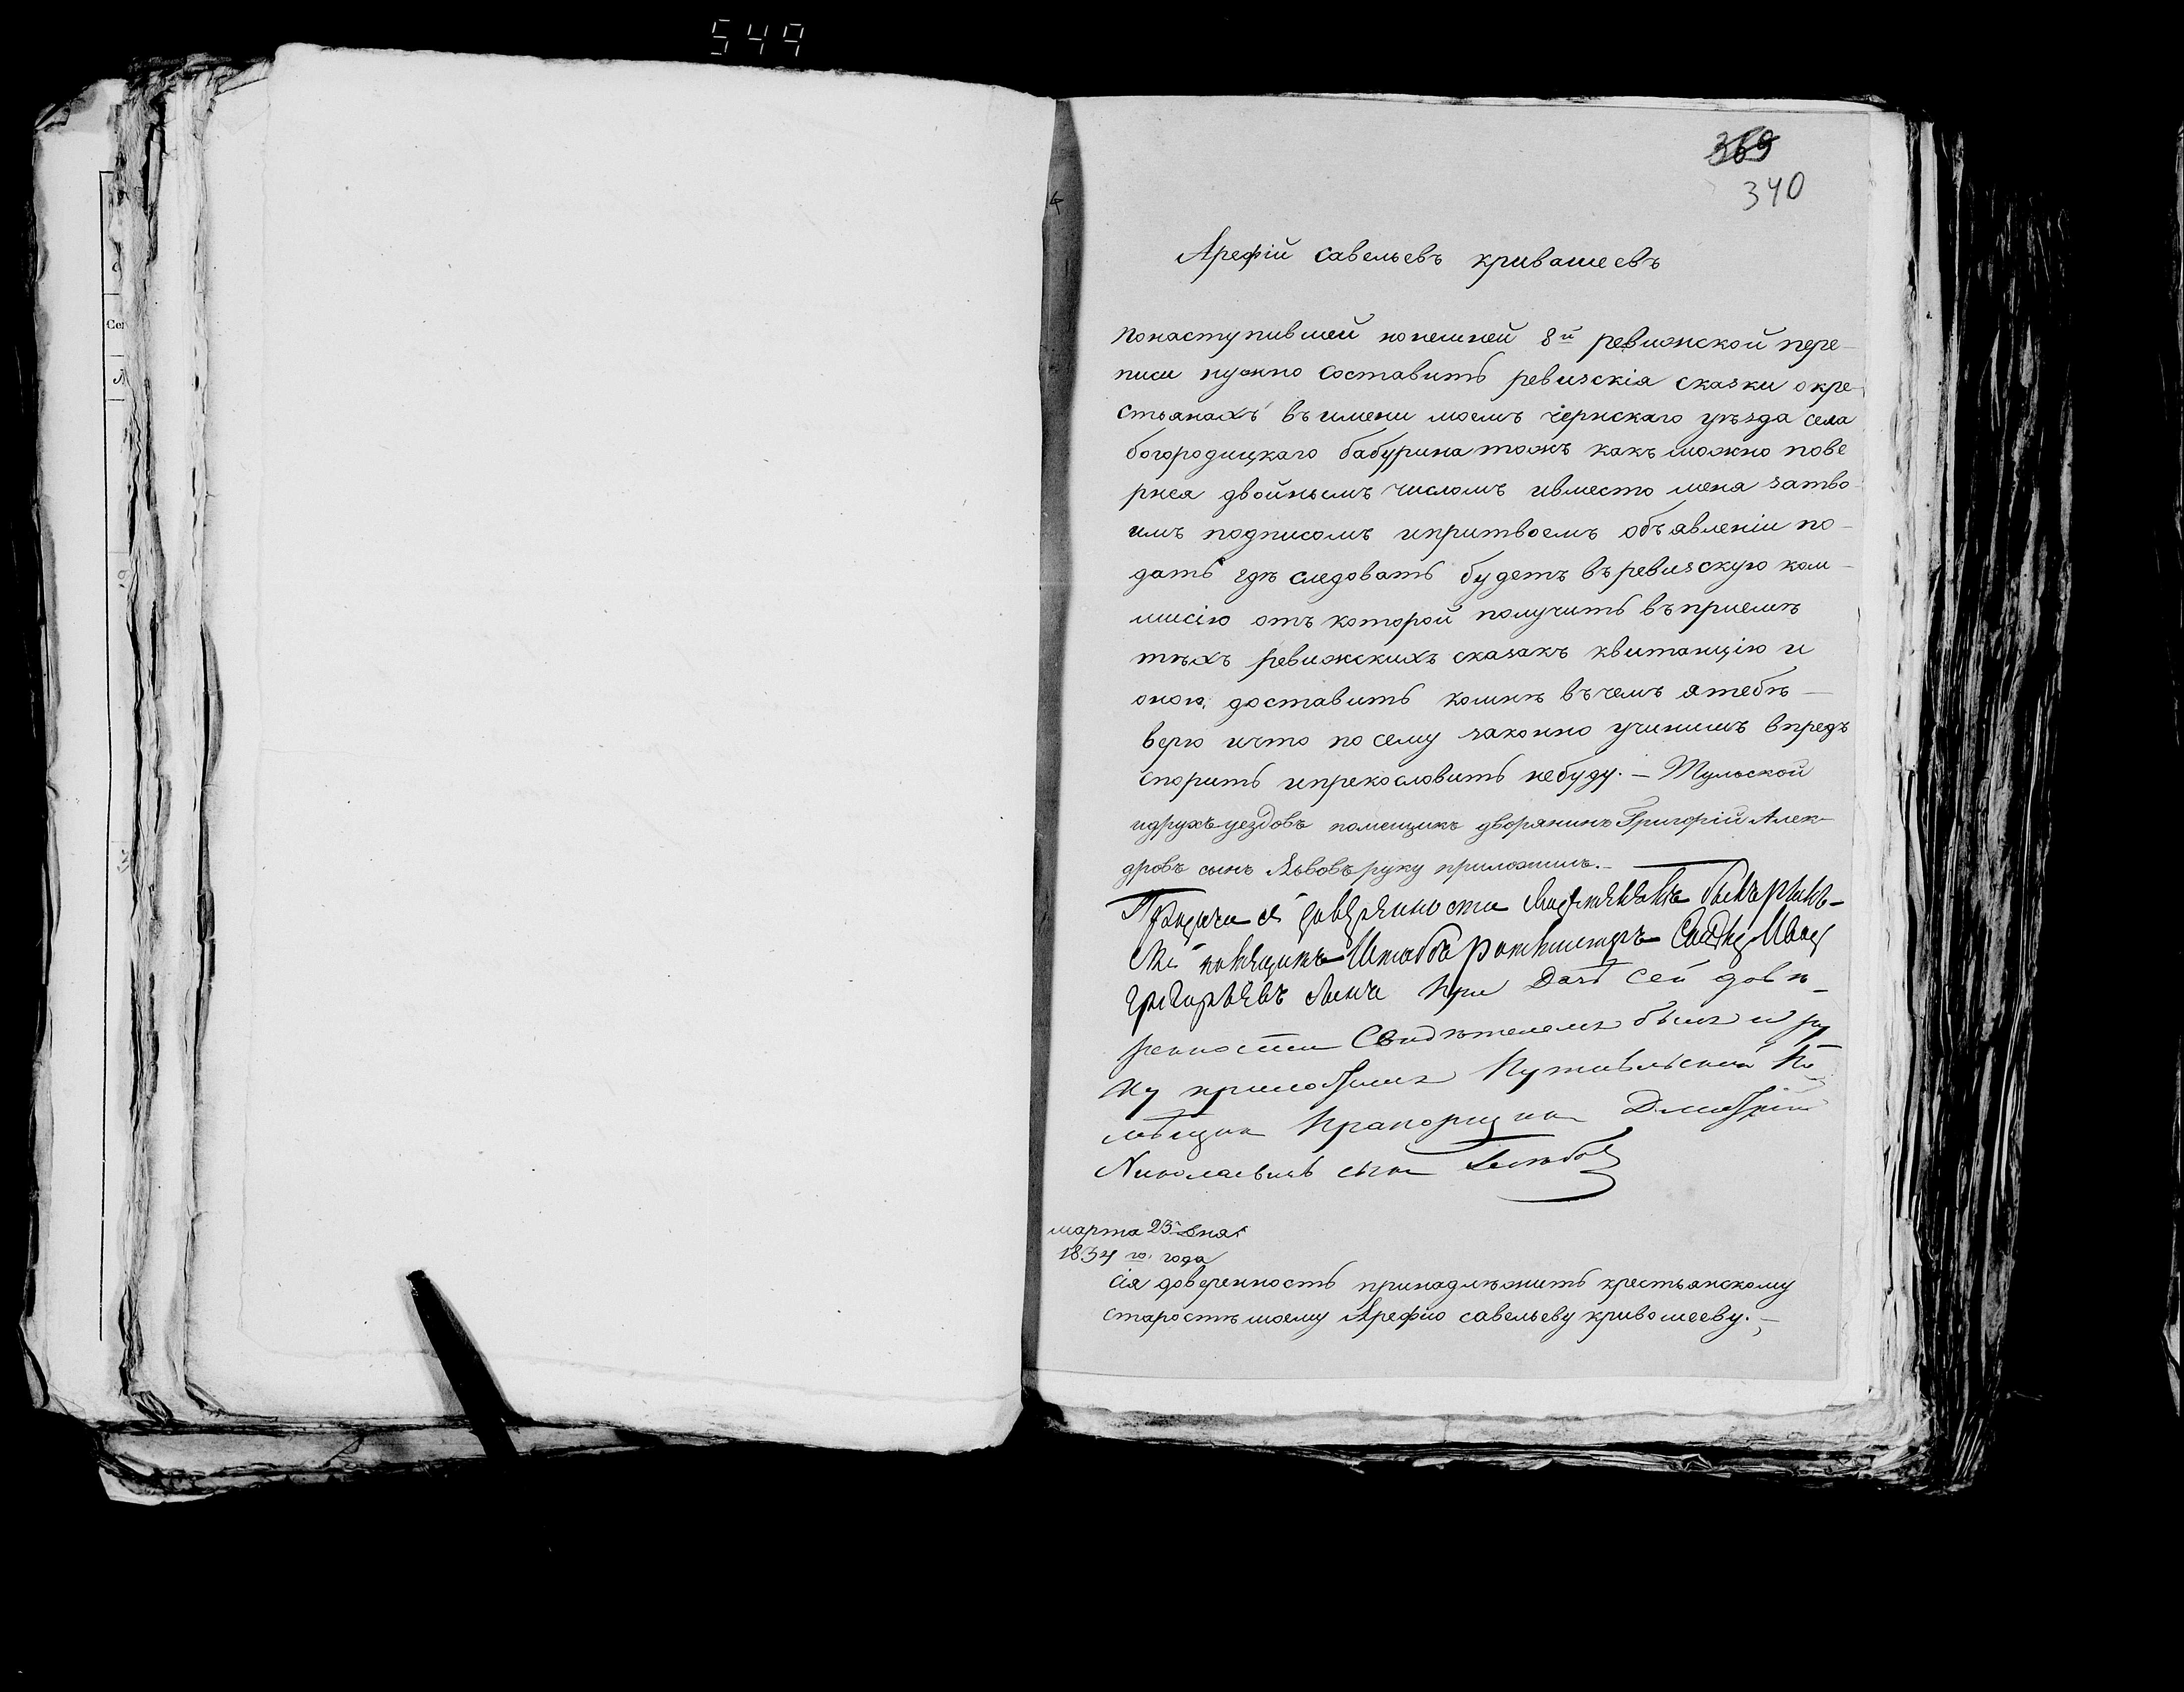 549
369
340
Арефій савельевъ кривашеевъ
понаступившей нонешней 8й ревижской пере-
писи нужно составить ревизскія сказки окре-
стьянахъ въ имени моемъ чернскаго уѣзда села
богородицкаго бабурина тожъ какъ можно пове
рнея двойнымъ числомъ ивместо меня затво
имъ подписомъ ипритвоемъ объявленіи по-
дать гдѣ следовать будетъ въ ревизскую ком-
мисію отъ которой получить въ приемѣ
тѣхъ ревижскихъ сказакъ квитанцію и
оною, доставить комнѣ въ чемъ ятебѣ —
верю ичто по сему законно учинишъ впредь
спорить ипрекословить небуду. — Тульской
идрухъ уездовъ помещикъ дворянинъ Григорій Алек-
дровъ сынъ Львовъ руку приложилъ. —
доверенности былъ
помещикъ Штабъ Ротмистръ
Григорьевъ сынъ При Dачѣ сей довѣ-
ренности Свидѣтелемъ былъ и ру
ку приложилъ Путивльской По
мѣщик Прапорщикъ Dмитрій
Николаевичь сынъ
марта 25 дня
1834 го. года
сія доверенность принадлѣжитъ крестьянскому
старостѣ моему Арефію савельеву кривошееву. —